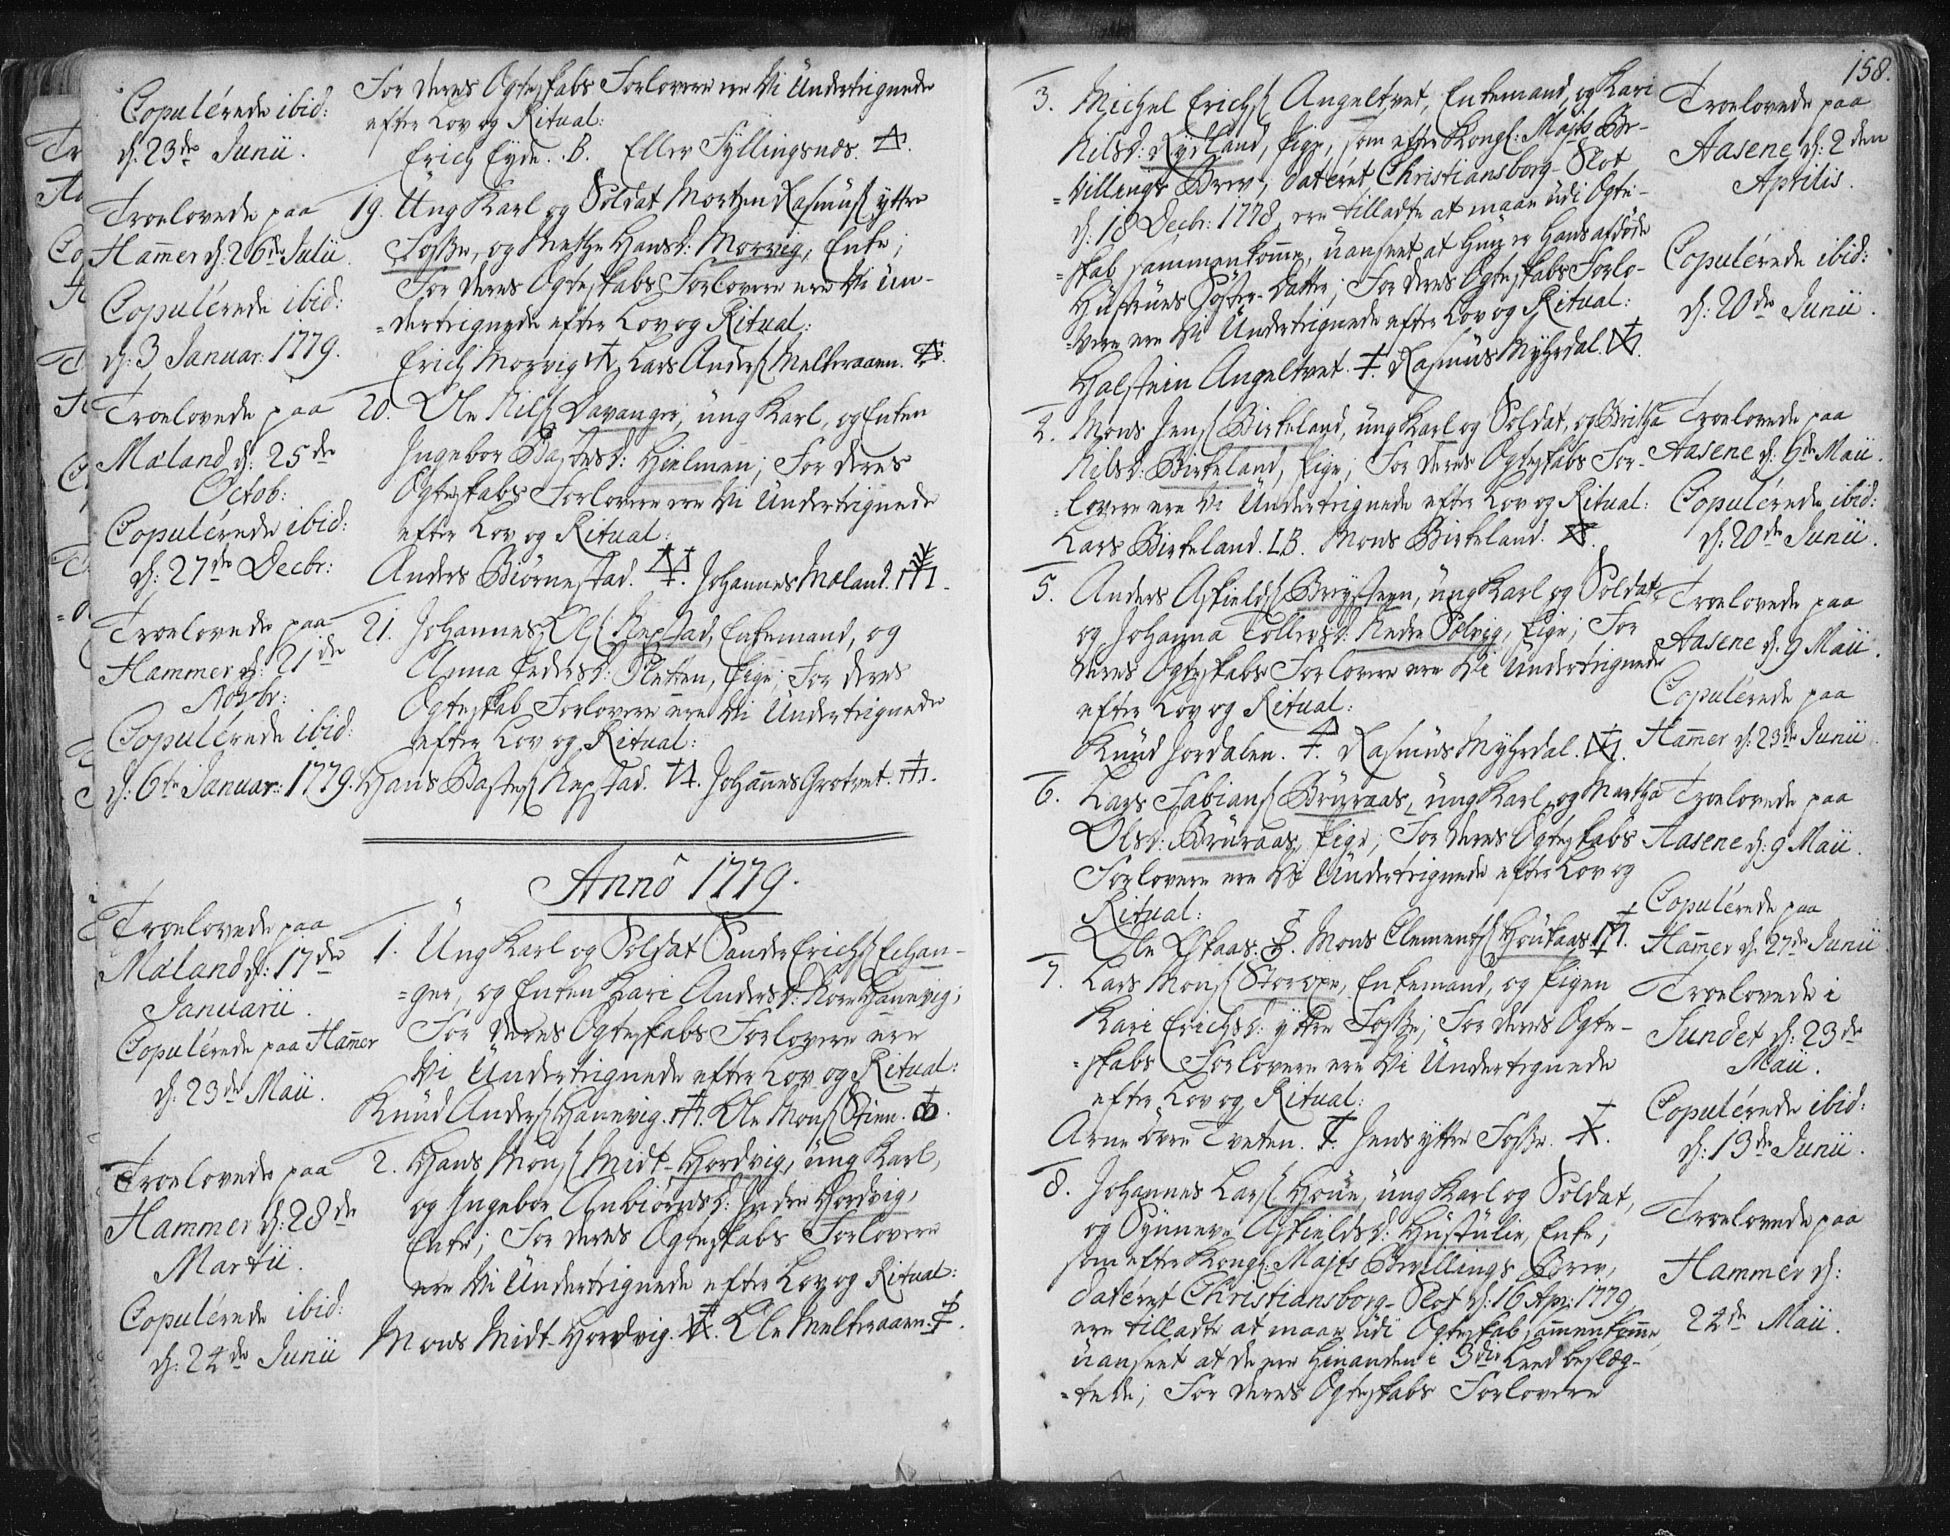 Copulérede ibid:
d: 23de Junii.
For deres Ægteskabs Forlovere ere Vi Undertegnede
efter Lov og Ritual:
Erich Eyde. B. Eller Syllingsnæs.
Troelovede paa
Ham̄er d: 26de Julii.
Copulérede ibid:
d: 3 Januar: 1779.
19. Ung Karl og Soldat Morten Rasmus: yttre
Fosse, og Mette Hansd: Morvig, Enke;
For deres Ægteskabs Forlovere ere Vi Un-
=dertegnede efter Lov og Ritual:
Erich Morvig Lars Anders: Melkeraaen.
Troelovede paa
Mæland d: 25de
Octob:
Copulérede ibid:
d: 27de Decbr:
20. Ole Nils: Davanger, ung Karl, og Enken
Ingebor Bastesd: Hielmen; For deres
Ægteskabs Forlovere ere Vi Undertegnede
efter Lov og Ritual:
Anders Biørnestad. Johannes Mæland.
Troelovede paa
Hammer d: 21de
Novbr:
Copulérede ibid:
d: 6te Januar: 1779.
21. Johannes Ols: Repstad, Enkemand, og
Anna Pedersd: Sletten, Pige; For deres
Ægteskab Forlovere ere Vi Undertegnede
efter Lov og Ritual:
Hans Bastes: Repstad. Johannes Grotvet.
Anno 1779.
Troelovede paa
Mæland d: 17de
Januarii.
Copulérede paa Ham̄er
d: 23de Maii.
1. Ung Karl og Soldat Sander Erichs: Echan-
=ger, og Enken Kari Andersd: Hanevig;
For deres Ægteskabs Forlovere ere
Vi Undertegnede efter Lov og Ritual:
Knud Anders: Hanevig. Ole Mons: Stien.
Troelovede paa
Hammer d: 28de
Martii.
Copulérede ibid:
d: 24de Junii
2. Hans Mons: Midt-Hordvig, ung Karl,
og Ingebor Anbiørnsd: Indre Hordvig,
Enke; For deres Ægteskabs Forlovere
ere Vi Undertegnede efter Lov og Ritual:
Mons Midt-Hordvig. Ole Melkeraaen.
158.
3. Michel Erichs: Angeltvet, Enkemand, og Kari
Nilsd: Rydland, Pige, som efter Kongl: Majts Be-
=villings Brev, datéret Christiansborg-Slot
d: 18 Decbr: 1778, ere tilladte at maae udi Ægte-
=skab sammenkom̄e, uanseet at hun er hans afdøde
Hustrues Søster-Datter; For deres Ægteskabs Forlo-
=vere ere Vi Undertegnede efter Lov og Ritual:
Halstein Angeltvet. Rasmus Myhrdal.
Troelovede paa
Aasene d: 2den
Aprilis.
Copulérede ibid:
d: 20de Junii.
2. Mons Jens: Birkeland, ung Karl og Soldat, og Britha
Nilsd: Birkeland, Pige, For deres Ægteskabs For-
=lovere ere Vi Undertegnede efter Lov og Ritual:
Lars Birkeland. LB. Mons Birkeland.
Troelovede paa
Aasene d: 9de Maii.
Copulérede ibid:
d: 20de Junii.
5. Anders Askields: Breysteen, ung Karl og Soldat
og Johanna Tollevsd: Nedre Solvig, Pige; For
deres Ægteskabs Forlovere ere Vi Undertegnede
efter Lov og Ritual:
Knud Jordalen. Rasmus Myhrdal.
Troelovede paa
Aasene d: 9 Maii.
Copulérede paa
Ham̄er d: 23de Junii
6. Lars Fabians: Bruraas, ung Karl, og Martha
Olsd: Bruraas, Pige; For deres Ægteskabs
Forlovere ere Vi Undertegnede efter Lov og
Ritual:
Ole Mons Clements: Houkaas
Troelovede paa
Aasene d: 9 Maii.
Copulérede paa
Ham̄er d: 27de Junii
7. Lars Mons: Storoxe, Enkemand, og Pigen
Kari Erichsd: yttre Fosse; For deres Ægte-
=skabs Forlovere ere Vi Undertegnede
efter Lov og Ritual:
Arne Øvre Tveten. Jens yttre Fosse.
Troelovede i
Sundet d: 23de
Maii.
Copulérede ibid:
d: 13de Junii.
8. Johannes Lars: Houe, ung Karl og Soldat,
og Synneve Askieldsd: Hustulie, Enke,
som efter Kongl: Majts Bevillings Brev,
datéret Christiansborg-Slot d: 16 Apr: 1779,
ere tilladte at maae udi Ægteskab sammenkom̄e,
uanseet at de ere hinanden i 3die Leed beslæg-
=tede; For deres Ægteskabs Forlovere
Troelovede paa
Hammer d:
24de Maii.